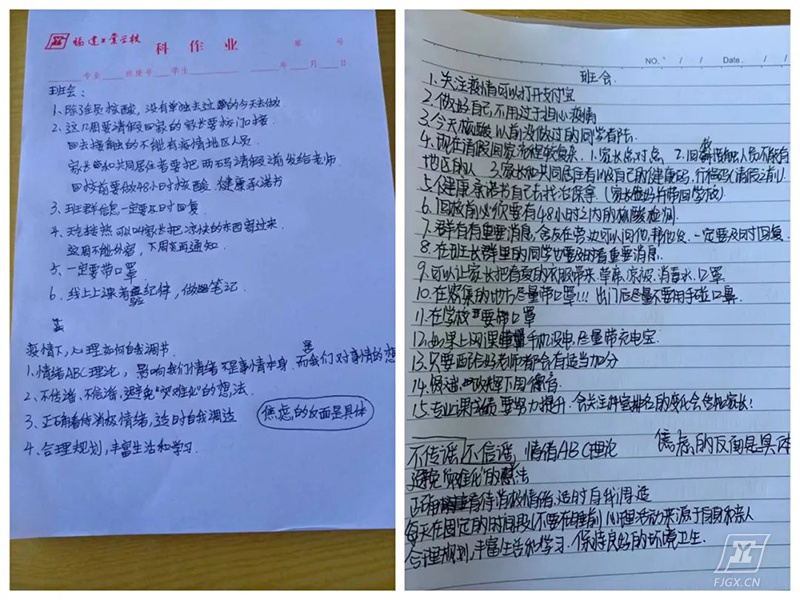 福建工业学校
科作业
第 号
专业 班座号 学生 年 月 日
班会：
1、除 核酸，没有单独去过 的今天去做
2、这几周要请假回家的家长要校门口接
回去接触的不能有疫情地区人员
家长 和共同居住者要把两码请假前发给老师
回校前要做48小时核酸 健康承诺书
3、班群信息一定要及时回复
4、天 热可以叫家长把凉快的东西寄过来
这周不能外宿，下周先再通知
5、一定要带口罩
6、线上上课看 纪律，做 笔记
疫情下，心理如何自我调节
1、情绪ABC理论，影响我们情绪不是事情本身，而是我们对事情的想
2、不传谣、不信谣，避免"灾难化"的想法
3、正确看待消极情绪，适时自我调适
焦虑的反面是具体
4、合理规划，丰富生活和学习
NO. / / Date. / /
班会
1.关注疫情可以打开支付宝
2.做好自己不用过于担心疫情
3.今天核酸以前没做过的同学看
4.现在请假回家流程较复杂，1.家长点对点 2.回 接触人员不能有
地区的人 3.家长和共同居住者以及自己的健康码，行程码(请假之前)
5.健康承诺书自己去找 (家长签名并带回学校)
6.回校前必须要有48小时之内的核酸检测
7.群有有重要消息，舍友在旁边可以问他，帮他发，一定要及时回复
8.在班长群里的同学也要及时看重要消息
9.可以让家长把有夏的衣服带来，草席，凉被，消毒水，口罩
10.在密集的地方尽量带口罩!!! 出门后尽量不要用手碰口罩
11.在学校 要带口罩
12.如果上网课 手机没电，尽量带充电宝
13.只要配合好老师都会有适当加分
14.
15.专业课成绩要努力提升，会关注 排名的变化会告知家长!
不传谣 不信谣，情绪ABC理论 焦虑的反面是具体
避免"灾难化"的想法
正确 看待消极情绪，适时自我调适
每天在固定的时间段(不要在睡前) 心理活动来源于自身和 人
合理规划，丰富生活和学习，保持良好的环境卫生
FJGX.CN